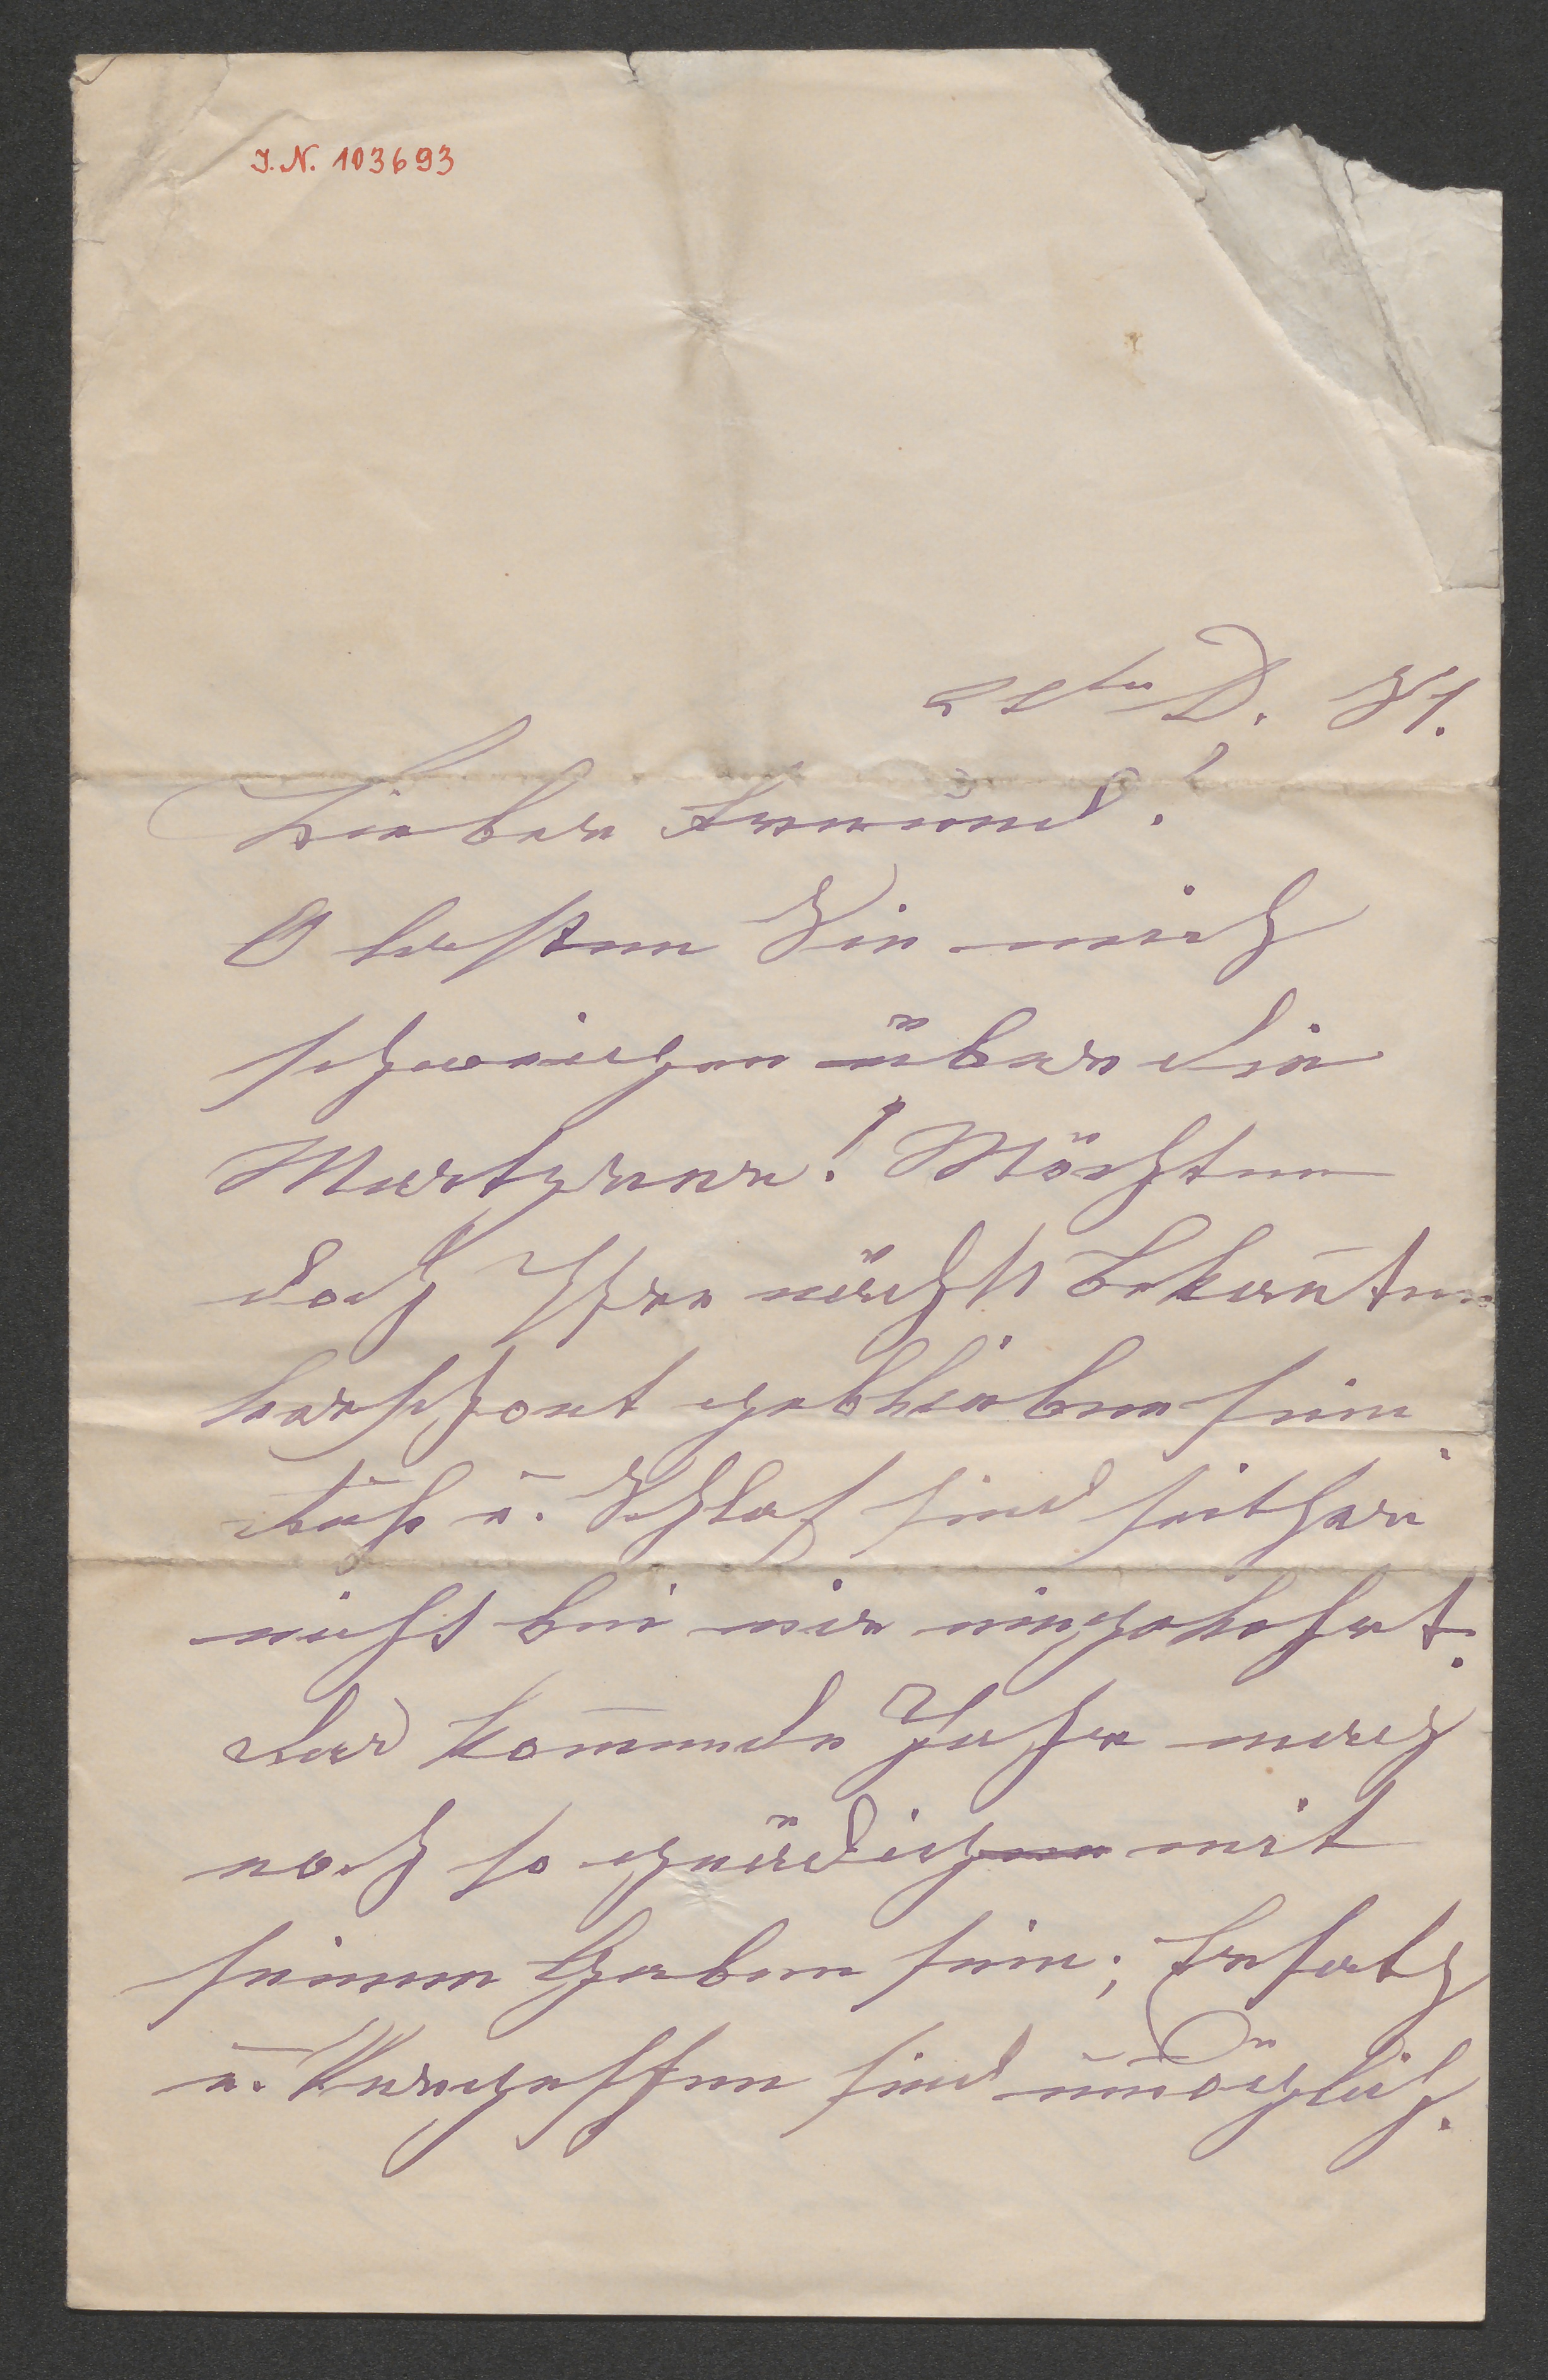 I.N. 103693
22ten D. 81.
Lieber Freund!
O lassen Sie mich
schweigen über die
Martyrer! Möchten
doch Ihre nächst Bekan̄ten
verschont geblieben sein
Ruh u. Schlaf sind seither
nicht bei mir eingekehrt.
Das kom̄ende Jahr mag
noch so gnädig mit
seinen Gaben sein; Ersatz
u. Vergessen sind unmöglich.